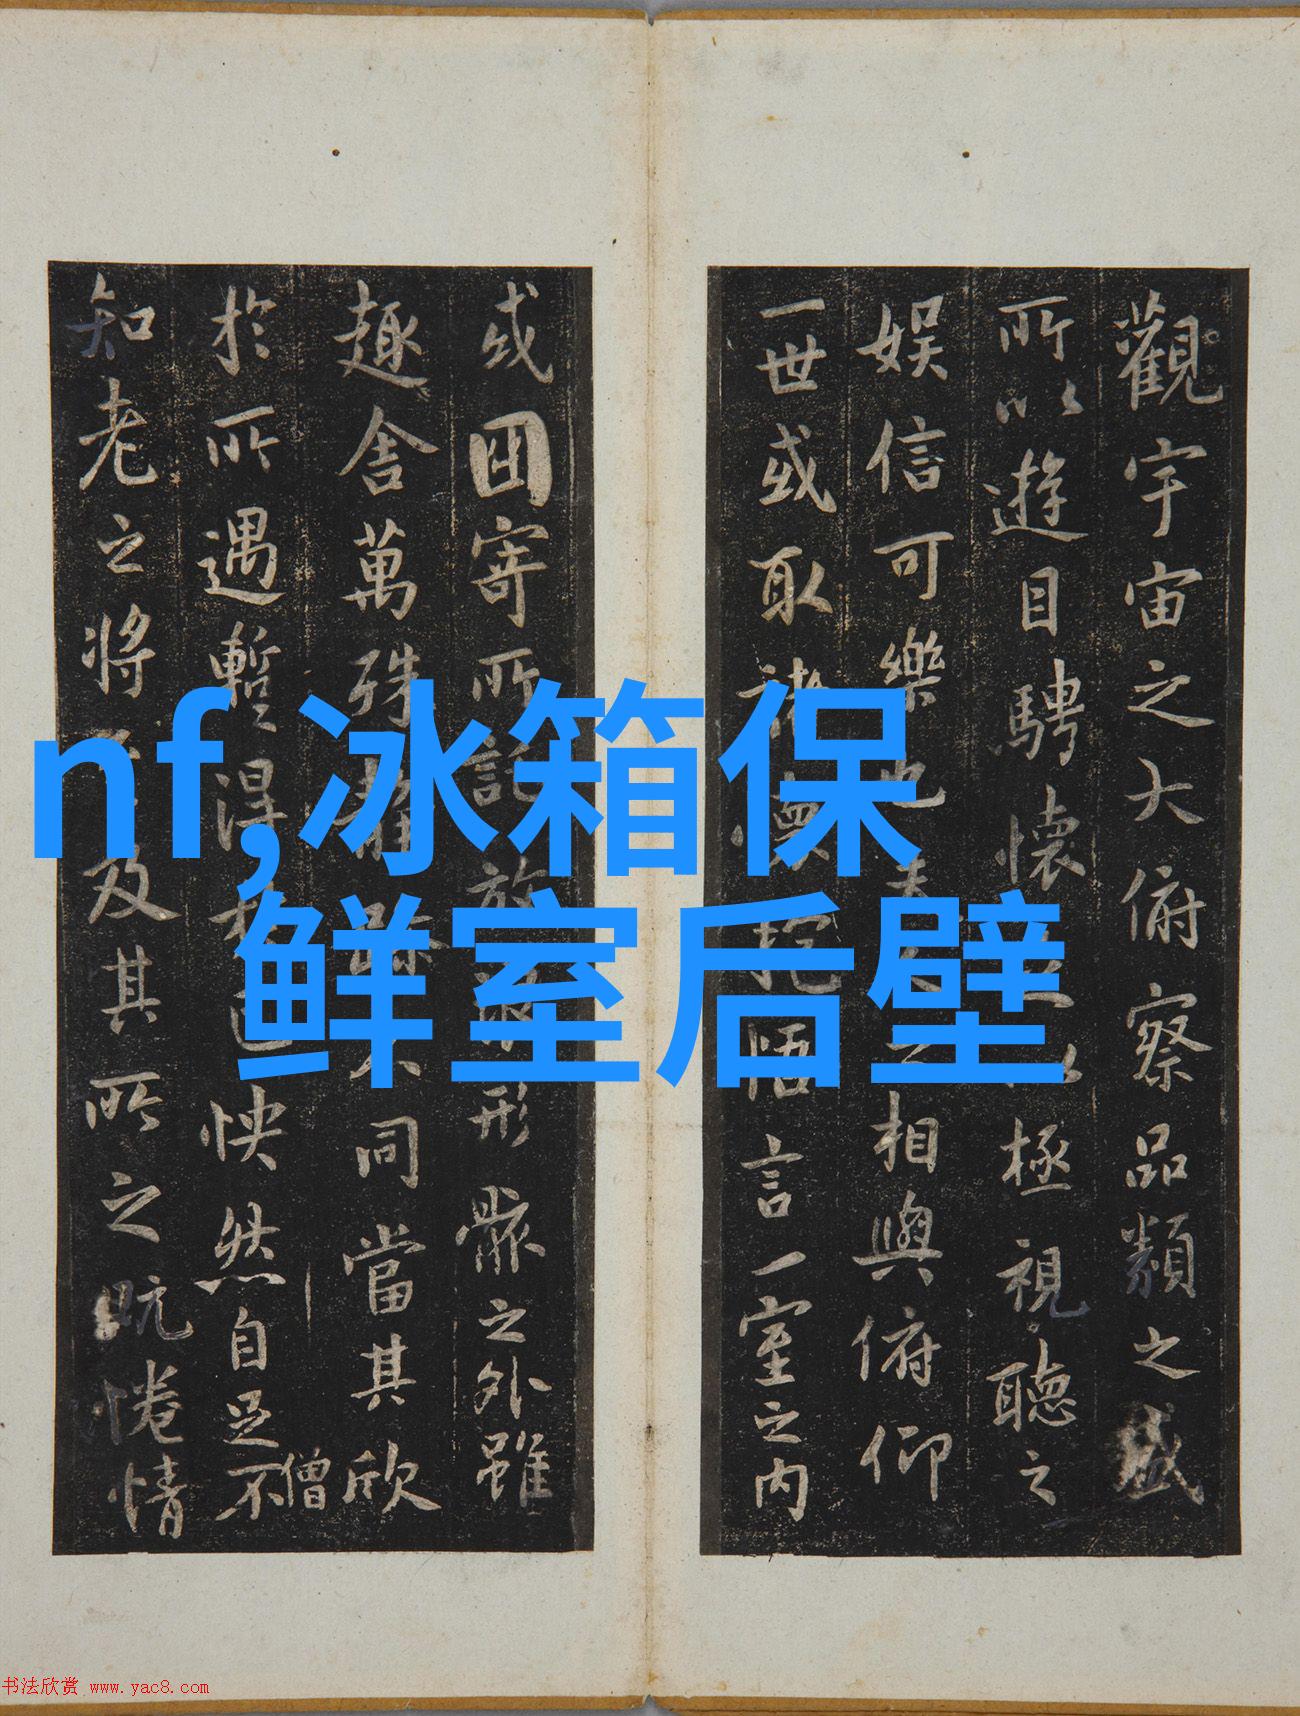 觀宇宙之大俯察品類之盛
所以遊目騁懷足以極視聽之
娛信可樂也夫人之相與俯仰
一世或取諸懷抱悟言一室之內
或因寄所託放浪形骸之外雖
趣舍萬殊靜躁不同當其欣
於所遇蹔得於己快然自足不
僧
知老之將至及其所之既惓情
nf,冰箱保
鲜室后壁
书法欣赏 www.yac8.com